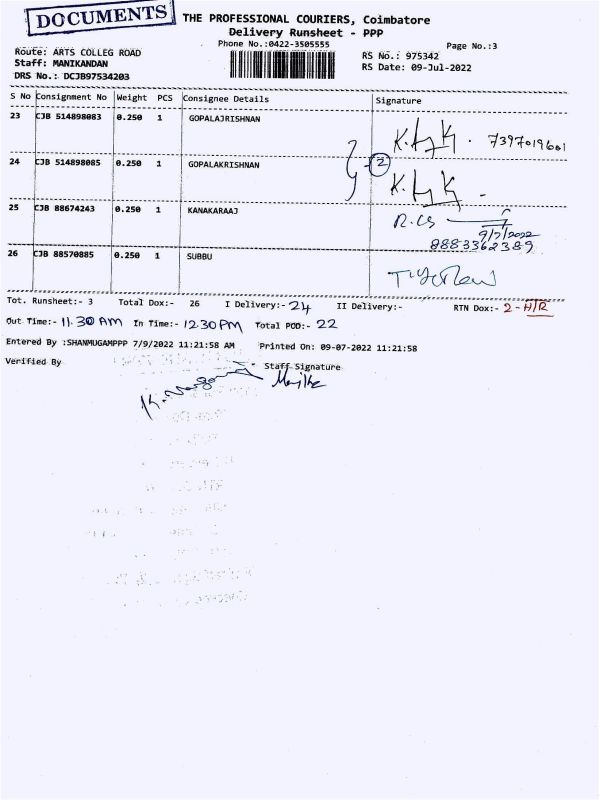 DOCUMENTS
THE PROFESSIONAL COURIERS, Coimbatore
Delivery Runsheet - PPP
Phone No.:0422-3505555
Page No.:3
Route: ARTS COLLEG ROAD
RS No.: 975342
Staff: MANIKANDAN
RS Date: 09-Jul-2022
DRS No.: DCJB97534203
S No Consignment No Weight PCS Consignee Details Signature
23 CJB 514898083 0.250 1 GOPALAJRISHNAN
7397019601
24 CJB 514898085 0.250 1 GOPALAKRISHNAN
2
25 CJB 88674243 0.250 1 KANAKARAAJ
9/7/2022
8883362389
26 CJB 88570885 0.250 1 SUBBU
Tot. Runsheet:- 3 Total Dox:- 26 I Delivery:- 24 II Delivery:- RTN Dox:- 2 - H/R
Out Time:- 11.30 AM In Time:- 12.30 PM Total POD:- 22
Entered By :SHANMUGAMPPP 7/9/2022 11:21:58 AM Printed On: 09-07-2022 11:21:58
Verified By Staff Signature